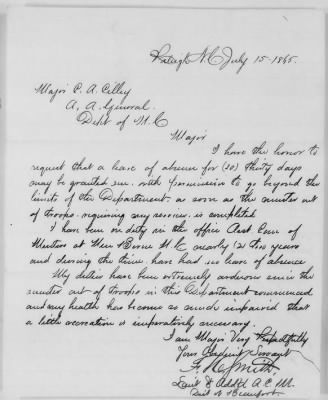 Raleigh N.C. July 15 - 1865.
Major C. A. Cilley
A. A. General.
Dept of N.C.
Major
I have the honor to
request that a leave of absence for (30) thirty days
may be granted me with permission to go beyond the
limits of the Department as soon as the muster out
of troops requiring my services is completed
I have been on duty in the office Asst Com of
Musters at New Berne N.C. nearly (2) two years
and during the time have had no leave of absence
My duties have been extremely arduous since the
muster out of troops in this Department commenced
and my health has become so much impaired that
a little recreation is imperatively necessary.
I am Major Very Respectfully
Your Obedient Servant
Smith,
Lieut &
Dist of Beaufort